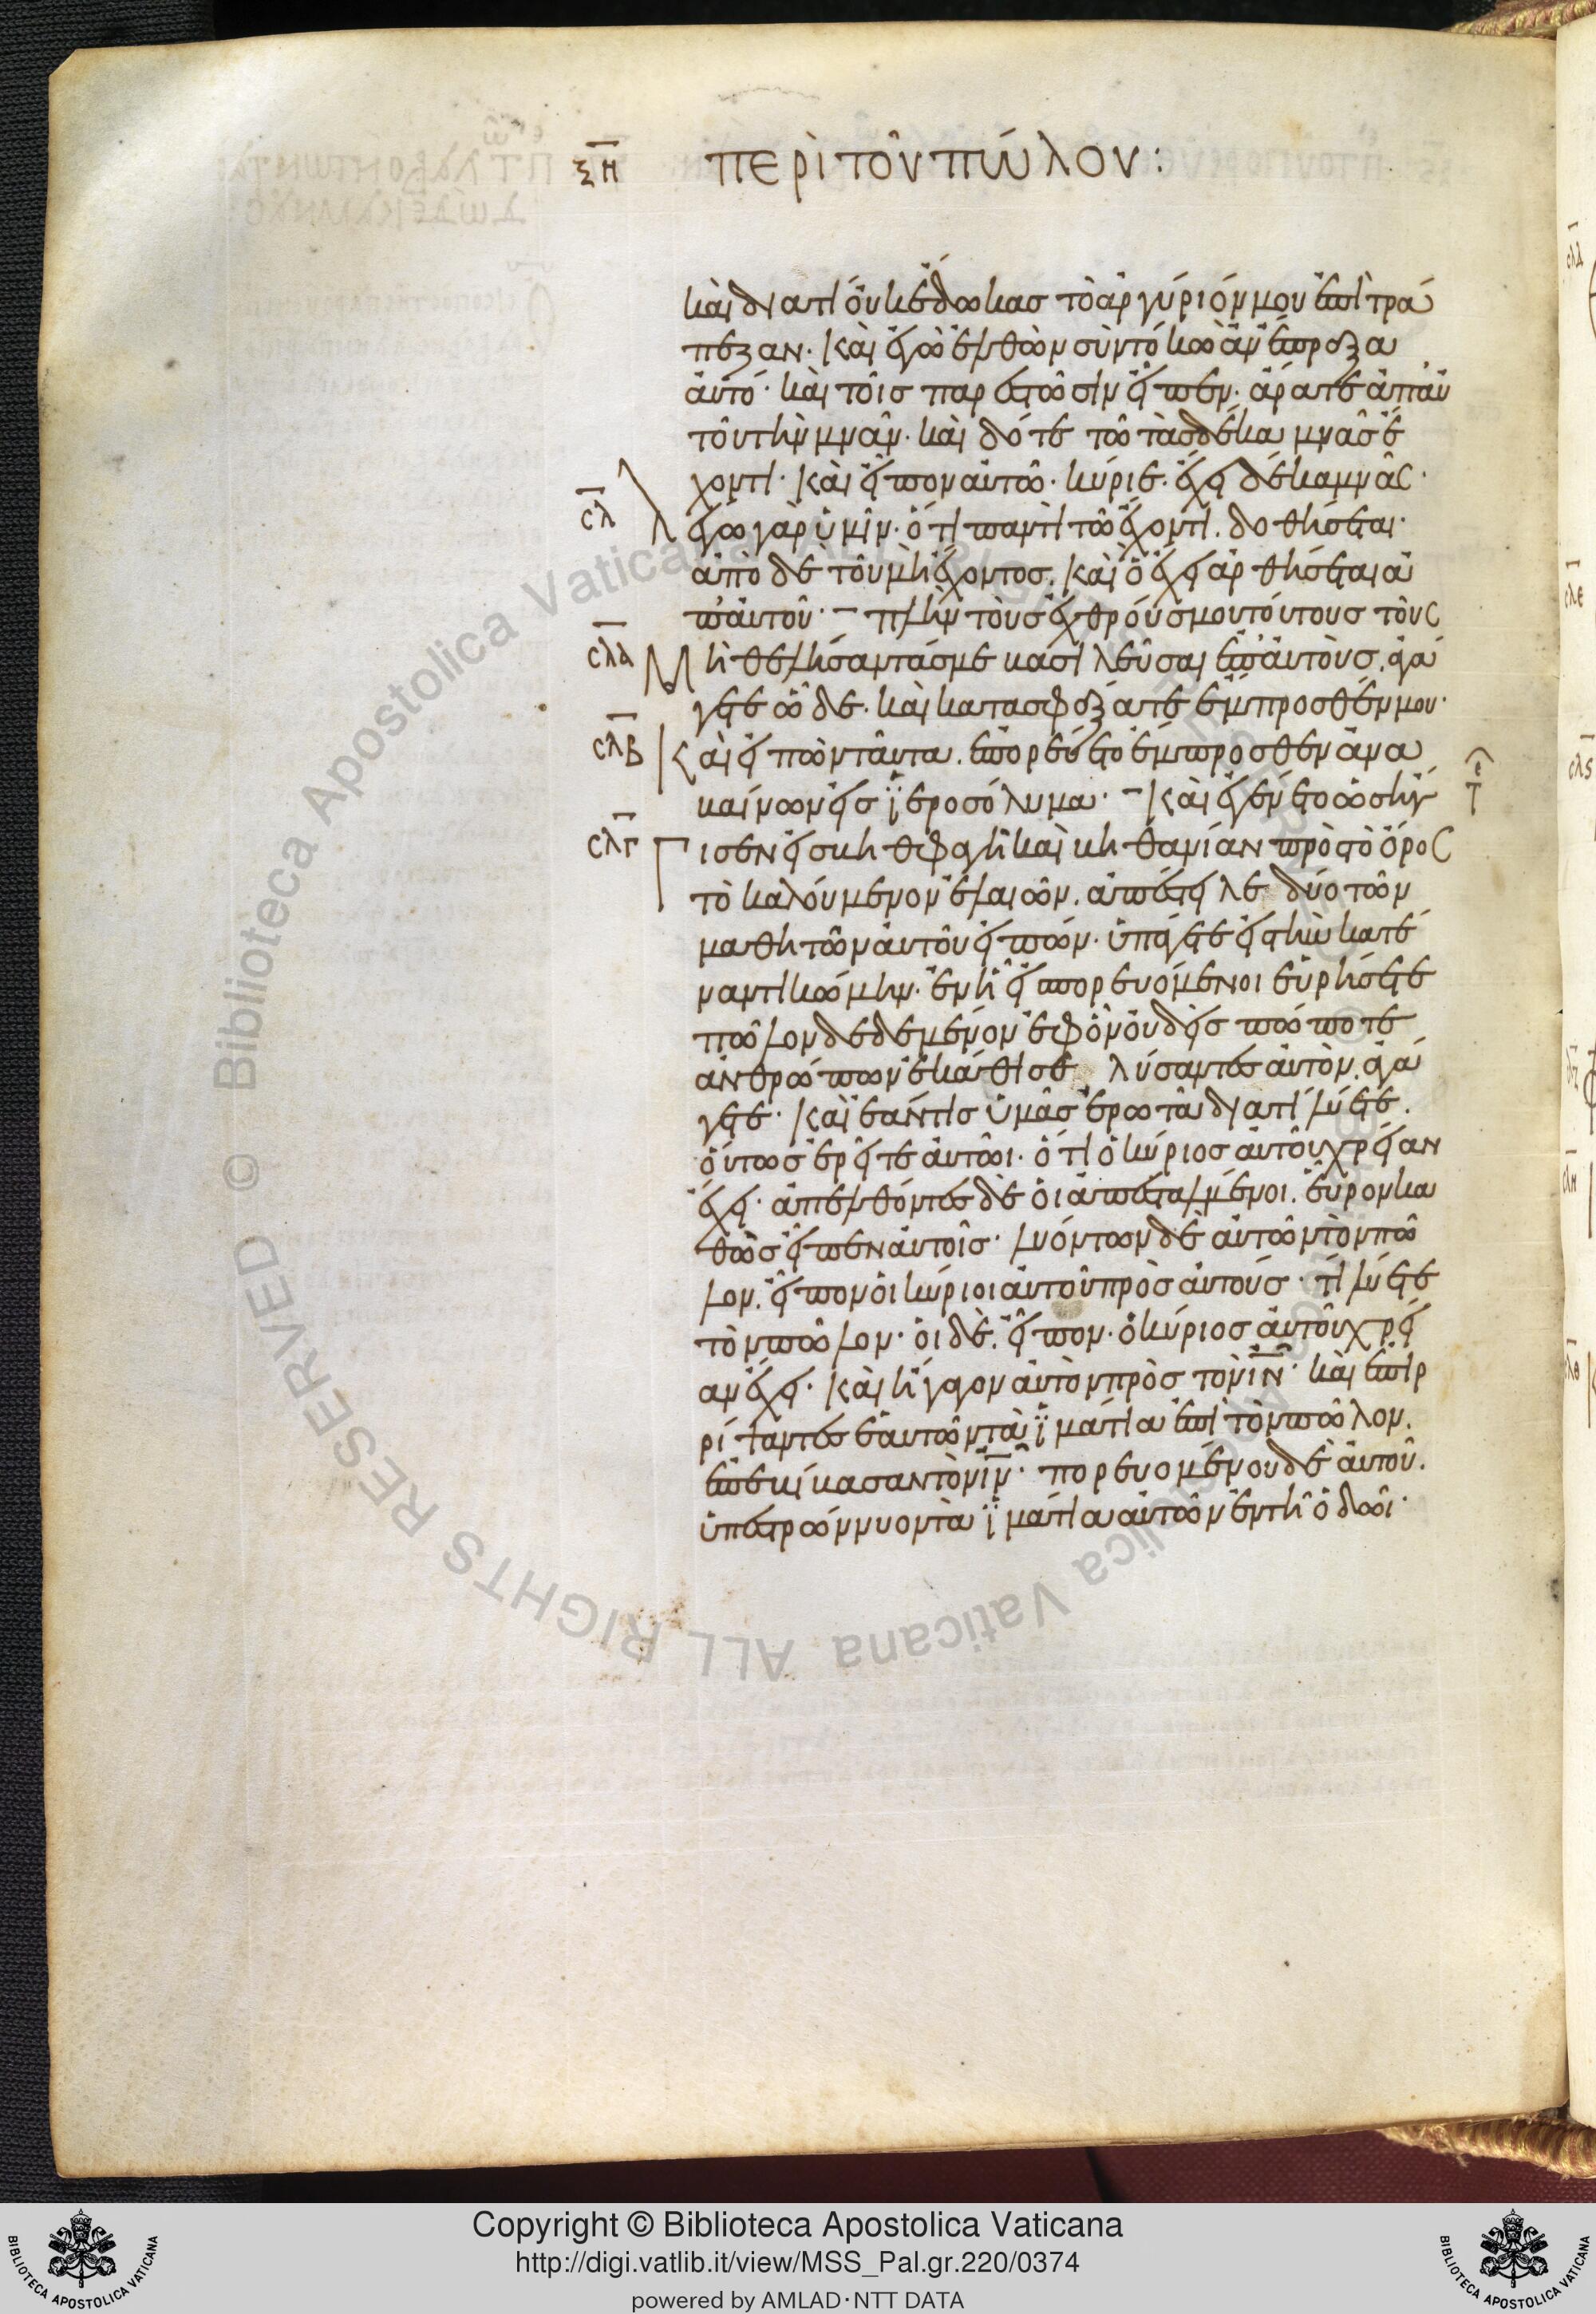 ξη περὶ τοῦ πώλου:
καὶ διατί οὐκ ἔδωκας τὸ ἀργύριόν μου ἐπὶ τρά
πεζαν· καὶ ἐγὼ ἐλθὼν σὺν τόκω ἂν ἔπραξα
αὐτό· καὶ τοῖς παρεστῶσιν εἶπεν· ἄρατε ἀπ' αὐ
τοῦ τὴν μνᾶν· καὶ δότε τῶ τὰς δέκα μνᾶς ἔ
χοντι· καὶ εἶπον αὐτῶ· κύριε· ἔχει δέκα μνᾶς·
σλ λέγω γὰρ ὑμῖν· ὅτι παντὶ τῶ ἔχοντι. δοθήσεται·
ἀπὸ δὲ τοῦ μὴ ἔχοντος. καὶ ὃ ἔχει ἀρθήσεται ἀ
π' αὐτοῦ· – πλὴν τοὺς ἐχθρούς μου τούτους τοὺς
σλα Μὴ θελήσαντάς με βασιλεῦσαι ἐπ' αὐτοὺς. ἀγά
γετε ὧδε. καὶ κατασφάξατε ἔμπροσθέν μου·
σλβ Καὶ εἰπὼν ταῦτα. ἐπορεύετο ἔμπροσθεν ἀνα
βαίνων εἰς ϊεροσόλυμα· – καὶ ἐγένετο ὡς ἤγ
σλγ Γισεν εἰς βηθσφαγὴ καὶ βηθανίαν πρὸς τὸ ὄρος
τὸ καλούμενον ἐλαιῶν. ἀπέστειλε δύο τῶν
μαθητῶν αὐτοῦ εἰπών· ὑπάγετε εἰς τὴν κατέ
ναντι κώμην· ἐν ἧ εἰσπορευόμενοι εὑρήσετε
πῶλον δεδεμένον ἐφ ὃν οὐδεὶς πώποτε
ἀνθρώπων ἐκάθισε λύσαντες αὐτὸν. ἀγά
γετε· καὶ ἐάν τις ὑμᾶς ἐρωτᾶ διατί λύετε.
οὕτως ἐρεῖτε αὐτῶι· ὅτι ὁ κύριος αὐτοῦ χρείαν
ἔχει· ἀπελθόντες δὲ οἱ ἀπεσταλμένοι. εὗρον κα
θὼς εἶπεν αὐτοῖς· λυόντων δὲ αὐτῶν τὸν πῶ
λον. εἶπον οἱ κύριοι αὐτοῦ πρὸς αὐτούς· τί λύετε
τὸν πῶλον· οἱ δὲ. εἶπον· ὁ κύριος αὐτοῦ χρεί
αν ἔχει· καὶ ἤγαγον αὐτὸν πρὸς τὸν ιν· καὶ ἐπιρ
ρίψαντες ἑαυτῶν τὰ ϊμάτια ἐπὶ τὸν πῶλον.
ἐπεβίβασαν τὸν ιν· πορευομένου δὲ αὐτοῦ.
ὑπεστρώννυον τὰ ϊμάτια αὐτῶν ἐν τῆ ὁδῶι·
Copyright © Biblioteca Apostolica Vaticana
http://digi.vatlib.it/view/MSS_Pal.gr.220/0374
powered by AMLAD·NTT DATA